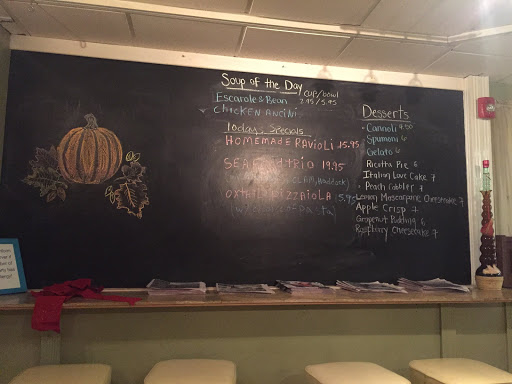 Soup of the Day
cup/bowl
Escarole & Bean 2.95/5.95
Chicken Ancini
Today's Specials
Homemade Ravioli 15.95
Seafood Trio 19.95
Haddock)
Oxtail Pizzaiola 15.95
Desserts
Cannoli 4.50
Spumoni 6
Gelato 6
Ricotta Pie 6
Italian Love Cake 7
Peach Cobbler 7
Lemon Mascarpone Cheesecake 7
Apple Crisp 7
Grapenut Pudding 6
Raspberry Cheesecake 7